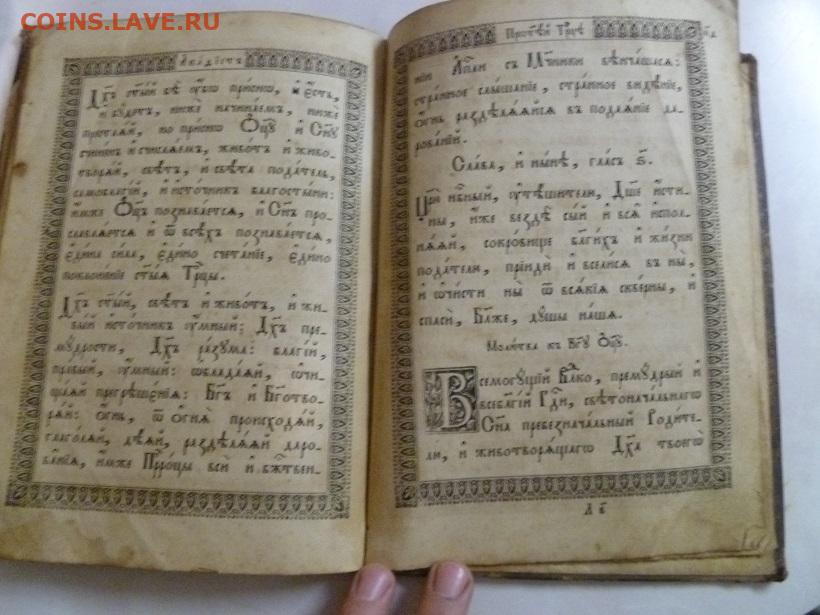 COINS.LAVE.RU
Акаѳістъ
Дх҃ъ ст҃ы́й бѣ̀ ᲂу҆́бѡ при́снѡ, и҆ є҆́сть,
и҆ бꙋ́детъ, нижѐ начина́емь, нижѐ
преста́ѧй, но при́снѡ Ѻ҆ц҃ꙋ̀ и҆ Сн҃ꙋ
счине́нъ и҆ счисла́емь, живо́тъ и҆ живо-
творѧ́й, свѣ́тъ, и҆ свѣ́та пода́тель,
самобл҃гі́й, и҆ и҆сто́чникъ бл҃госты́ни:
и҆́мже Ѻ҆ц҃ъ познава́етсѧ, и҆ Сн҃ъ про-
славлѧ́етсѧ и҆ ѿ всѣ́хъ познава́етсѧ,
є҆ди́на си́ла, є҆ди́но счета́ніе, є҆ди́но
поклоне́ніе ст҃ы́ѧ Трⷪ҇цы.
Дх҃ъ ст҃ы́й, свѣ́тъ и҆ живо́тъ, и҆ жи-
вы́й и҆сто́чникъ ᲂу҆́мный: Дх҃ъ пре-
мꙋ́дрости, Дх҃ъ ра́зꙋма: бл҃гі́й,
пра́вый, ᲂу҆́мный: ѡ҆блада́ѧй, ѡ҆чи-
ща́ѧй прегрѣшє́нїѧ: Бг҃ъ и҆ Бг҃отво-
рѧ́й: ѻ҆́гнь, ѿ ѻ҆гнѧ̀ происходѧ́й,
глаго́лѧй, дѣ́ѧй, раздѣлѧ́ѧй даро-
ва̑нїѧ, и҆́мже Прⷪ҇ро́цы всѝ и҆ бж҃е́ствен-
Трⷪ҇цѣ
нїи А҆пⷭ҇ли съ Мч҃нки вѣнча́шасѧ:
стра́нное слы́шаніе, стра́нное видѣ́нїе,
ѻ҆́гнь раздѣлѧ́ѧйсѧ въ подаѧ́нїе да-
рова́ній.
Сла́ва, и҆ ны́нѣ, гла́съ ѕ҃.
Цр҃ю̀ нбⷭ҇ный, ᲂу҆тѣ́шителю, Дш҃е и҆́сти-
ны, и҆́же вездѣ̀ сы́й и҆ всѧ̑ и҆сполн-
ѧ́ѧй, сокро́вище бл҃ги́хъ и҆ жи́зни
пода́телю, прїидѝ и҆ всели́сѧ въ ны̀,
и҆ ѡ҆чи́сти ны̀ ѿ всѧ́кїѧ скве́рны, и҆
спасѝ, Бл҃же, дꙋ́шы на́шѧ.
Моли́тва къ Бг҃ꙋ Ѻ҆ц҃ꙋ̀.
Всемогꙋ́щїй Вл҃ко, премꙋ́дрый и҆
всебл҃гі́й Гдⷭ҇и, свѣтонача́льнагѡ
Сн҃а пребезнача́льный Роди́те-
лю, и҆ животворѧ́щагѡ Дх҃а твоегѡ̀